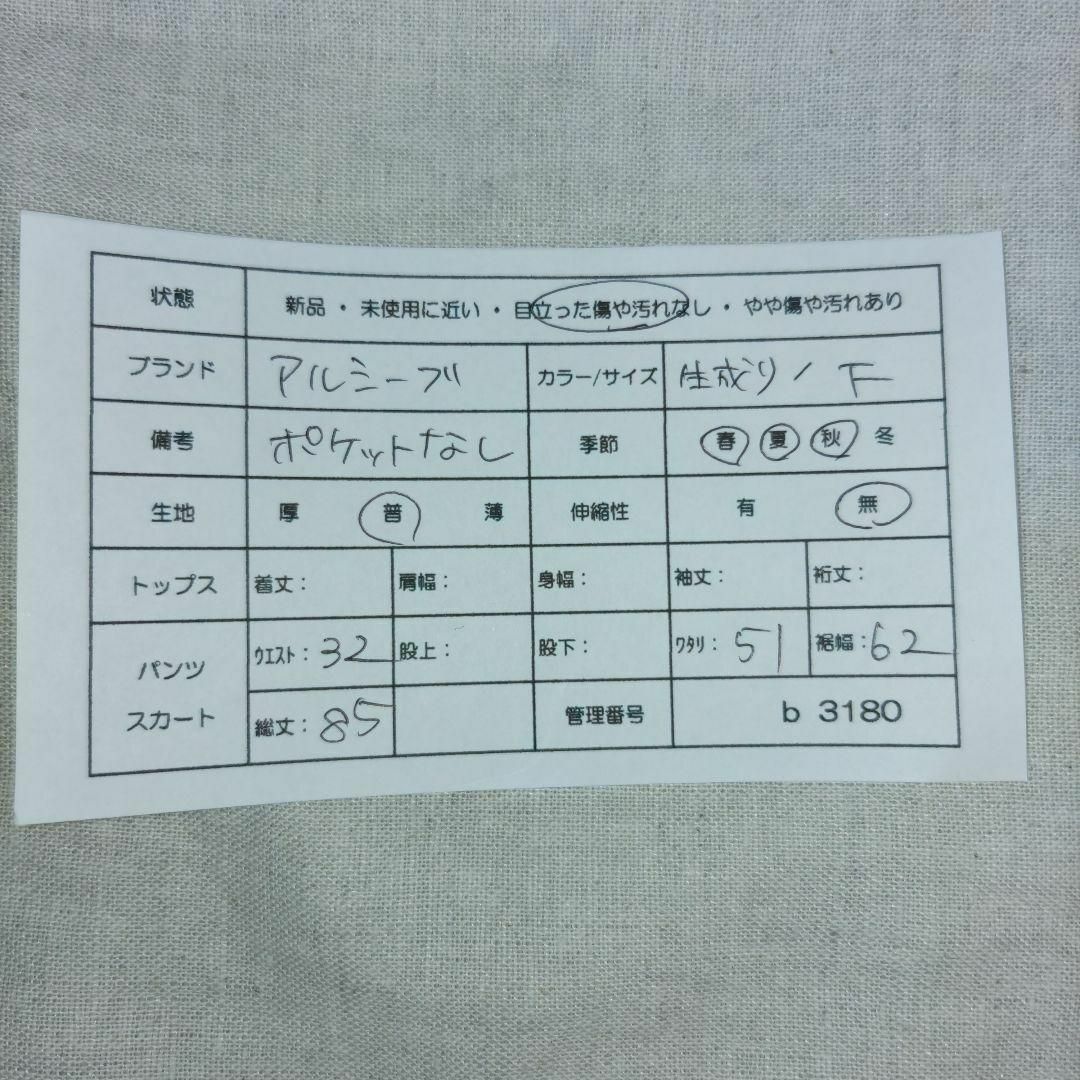 状態 新品・未使用に近い・目立った傷や汚れなし・やや傷や汚れあり
ブランド アルシーブ カラー/サイズ 生成り/F
備考 ポケットなし 季節 春 夏 秋 冬
生地 厚 普 薄 伸縮性 有 無
トップス 着丈: 肩幅: 身幅: 袖丈: 裄丈:
パンツ スカート ウエスト:32 股上: 股下: ワタリ:51 裾幅:62
総丈:85 管理番号 b 3180